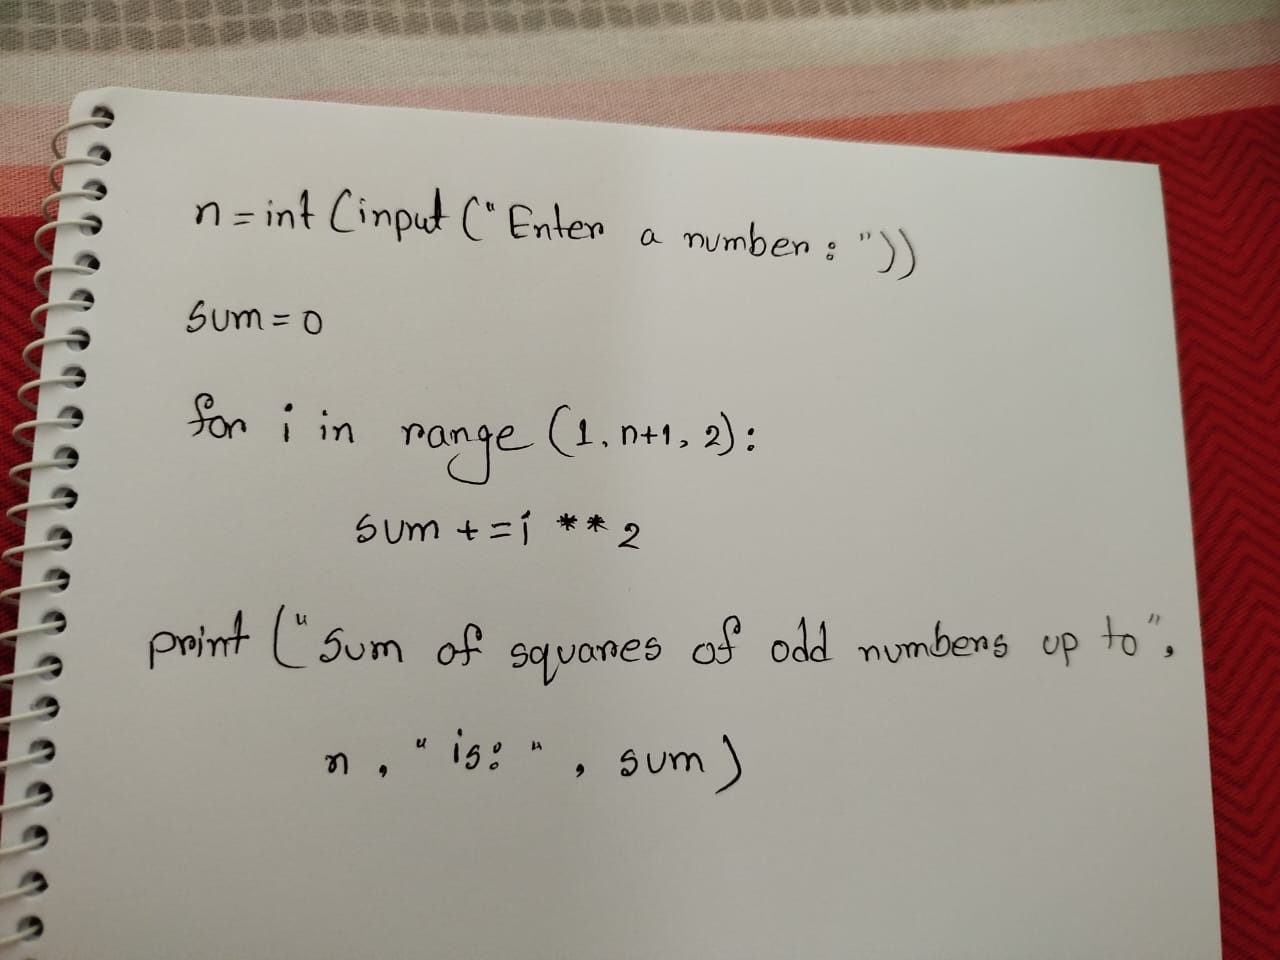 n=int(input("Enter a number: "))
sum=0
for i in range(1, n+1, 2):
sum +=i **2
print("Sum of squares of odd numbers up to",
n, "is: ", sum)